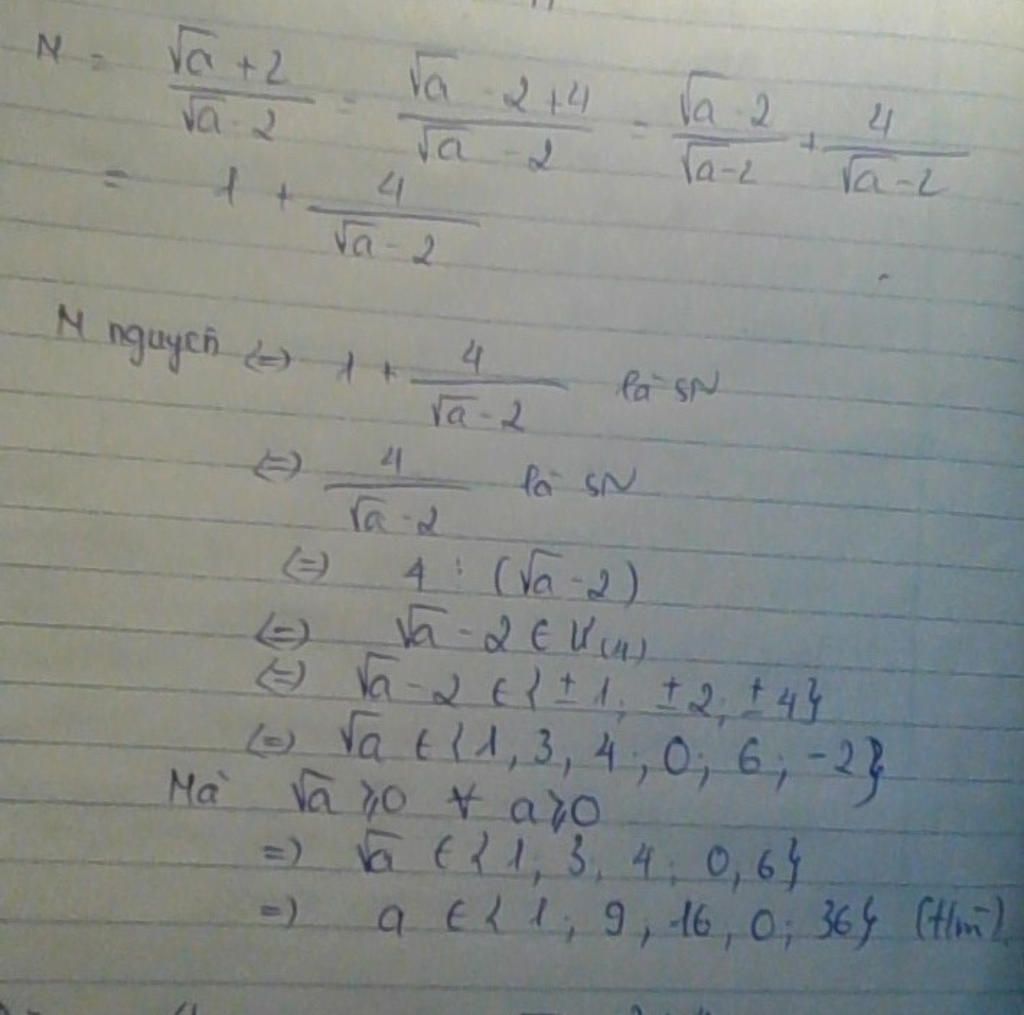 M = (√a + 2)/(√a - 2) = (√a - 2 + 4)/(√a - 2) = (√a - 2)/(√a - 2) + 4/(√a - 2)
= 1 + 4/(√a - 2)
M nguyên <=> 1 + 4/(√a - 2) là sN
<=> 4/(√a - 2) là sN
<=> 4 ⋮ (√a - 2)
<=> √a - 2 ∈ Ư(4)
<=> √a - 2 ∈ { ± 1; ± 2; ± 4}
<=> √a ∈ {1, 3, 4; 0; 6; -2}
Mà √a ⩾ 0 ∀ a ⩾ 0
=> √a ∈ {1; 3, 4; 0, 6}
=> a ∈ {1; 9, 16, 0; 36} (t/m)